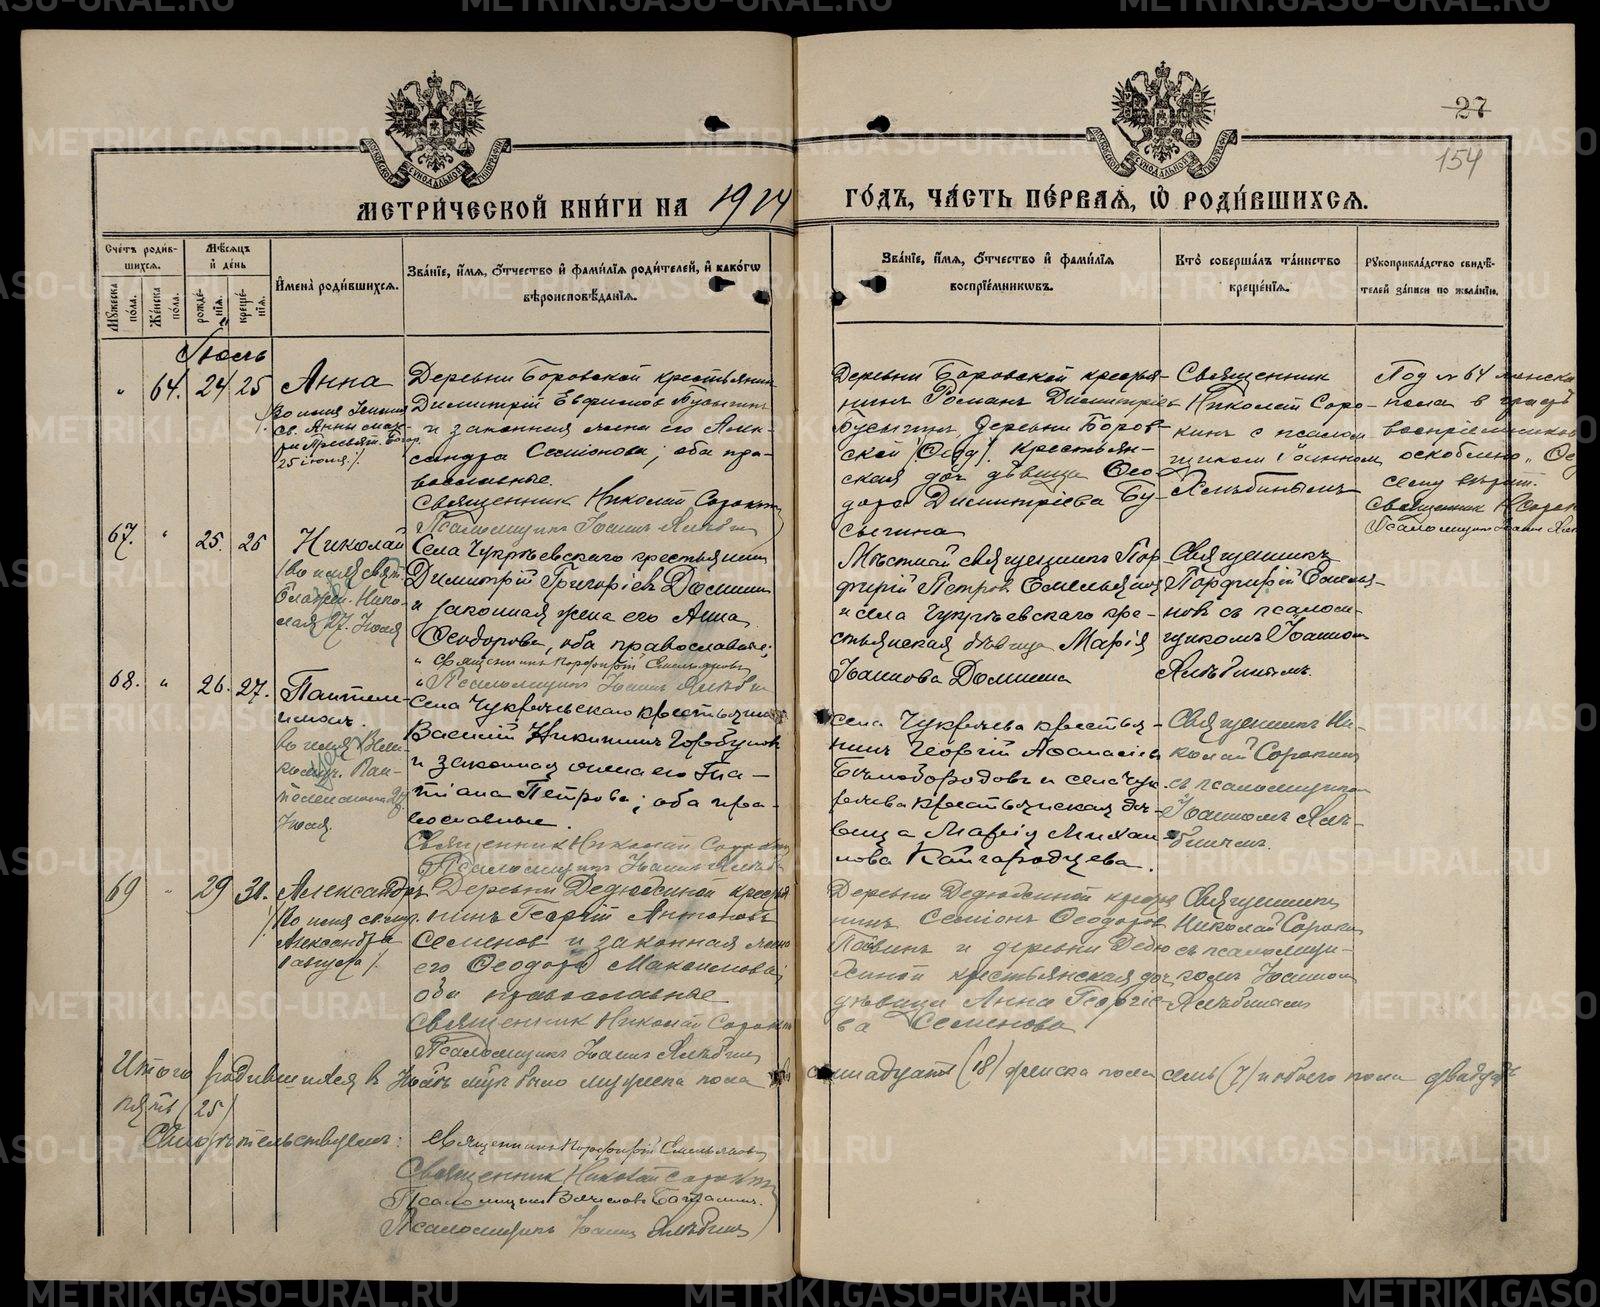 METRIKI.GASO-URAL.RU
27
154
МЕТРИ́ЧЕСКОЙ КНИ́ГИ НА 1914
ГО́ДЪ, ЧА́СТЬ ПЕ́РВАѦ, Ѡ҆ РОДИ́ВШИХСѦ.
Сче́тъ роди́в-
шихсѧ.
Му́жеска по́ла.
Же́нска по́ла.
Мѣ́сѧцъ
и҆ де́нь
рожде́нїѧ.
креще́нїѧ.
И҆мена̀ роди́вшихсѧ.
Зва́нїе, и҆́мѧ, ѻ҆́тчество и҆ фами́лїѧ роди́телей, и҆ како́гѡ
вѣроисповѣ́данїѧ.
Зва́нїе, и҆́мѧ, ѻ҆́тчество и҆ фами́лїѧ
воспрїе́мникѡвъ.
Кто̀ соверша́лъ та́инство
креще́нїѧ.
Рꙋкоприкла́дство свидѣ́-
телей за́писи по жела́нїю.
Іюль
" 64. 24 25 Анна
св. Анны мате-
25 іюля).
Деревни Боровской крестьянин
Димитрій Евфимов Бусыгин
и законная жена его Алек-
сандра Семіонова; оба пра-
вославные.
Священник Николай Сорокин
Псаломщик Іоанн Хлѣбин
Деревни Боровской крестья-
нин Роман Димитріев
Бусыгин деревни Боров-
ской крестьян-
ская доч. дѣвица Ѳео-
дора Димитріева Бу-
сыгина
Священник
Николай Соро-
кин с псалом-
щиком Іоанном
Хлѣбиным
Под № 64 женска
пола в графѣ
воспріемников
оскоблено „Ѳе
сему вѣрит.
Священник Н Сорок
Псаломщик Іоанн Хлѣ
67. " 25. 26 Николай
(во имя свят.
Блажен. Нико-
лая 27. Іюля
Села Чукреевскаго крестьянин
Димитрій Григоріев Домнин
и законная жена его Анна
Ѳеодорова, оба православные;
Священник Порфирій Емельянов
Псаломщик Іоанн Хлѣбин
Мѣстный священник Пор-
фирій Петров Емельянов
и села Чукреевскаго кре-
стьянская дѣвица Марія
Іоаннова Домнина
Священник
Порфирій Емелья-
нов съ псалом-
щиком Іоанном
Хлѣбиным.
68. " 26. 27. Пантеле-
имон.
во имя Вели-
комуч. Пан-
телеимона 27
Іюля.
Села Чукреевскаго крестьянин
Василій Никитин Горбунов
и законная жена его Та-
тіана Петрова; оба пра-
вославные.
Священник Николай Сорокин
Псаломщик Іоанн Хлѣбин
села Чукреева крестья-
нин Георгій Аѳанасіев
Бѣлобородовъ и села Чук-
реева крестьянская дѣ-
вица Марія Михаи-
лова Кайгородцева.
Священник Ни-
колай Сорокин
съ псаломщиком
Іоанном Хлѣ-
биным.
69 " 29 30. Александръ
(во имя св. муч.
Александра
1 августа).
Деревни Дедюхиной крестья
нин Георгій Антонов
Семенов и законная жена
его Ѳеодора Максимова;
оба православные
Священник Николай Сорокин
Псаломщик Іоанн Хлѣбин
Деревни Дедюхиной кресть
нин Семіон Ѳеодоров
и деревни Дедю-
хиной крестьянская доч.
дѣвица Анна Георгіе-
ва Семенова
Священник
Николай Сорокин
съ псаломщи-
ком Іоанном
Хлѣбиным
Итого родившихся в Іюль мѣс. было мужеска пола восемнадцать (18) женска пола семь (7) и обоего пола двадцать
пять (25)
Свидѣтельствуем: Священник Порфирій Емельянов
Священник Николай Сорокин
Псаломщик
Псаломщик Іоанн Хлѣбин